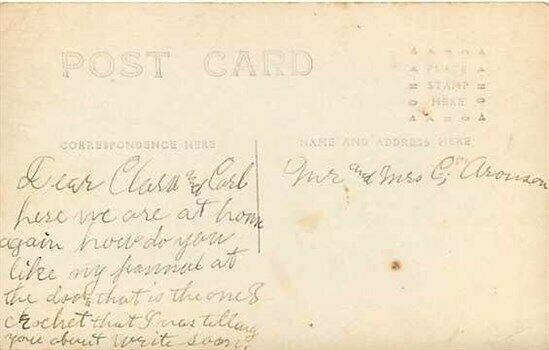 POST CARD
PLACE
STAMP
HERE
CORRESPONDENCE HERE
NAME AND ADDRESS HERE
Dear Clara and Carl
here we are at home
again how do you
like my pannal at
the door that is the one I
crochet that I was telling
you about write soon.
Mr and Mrs C, Aronson